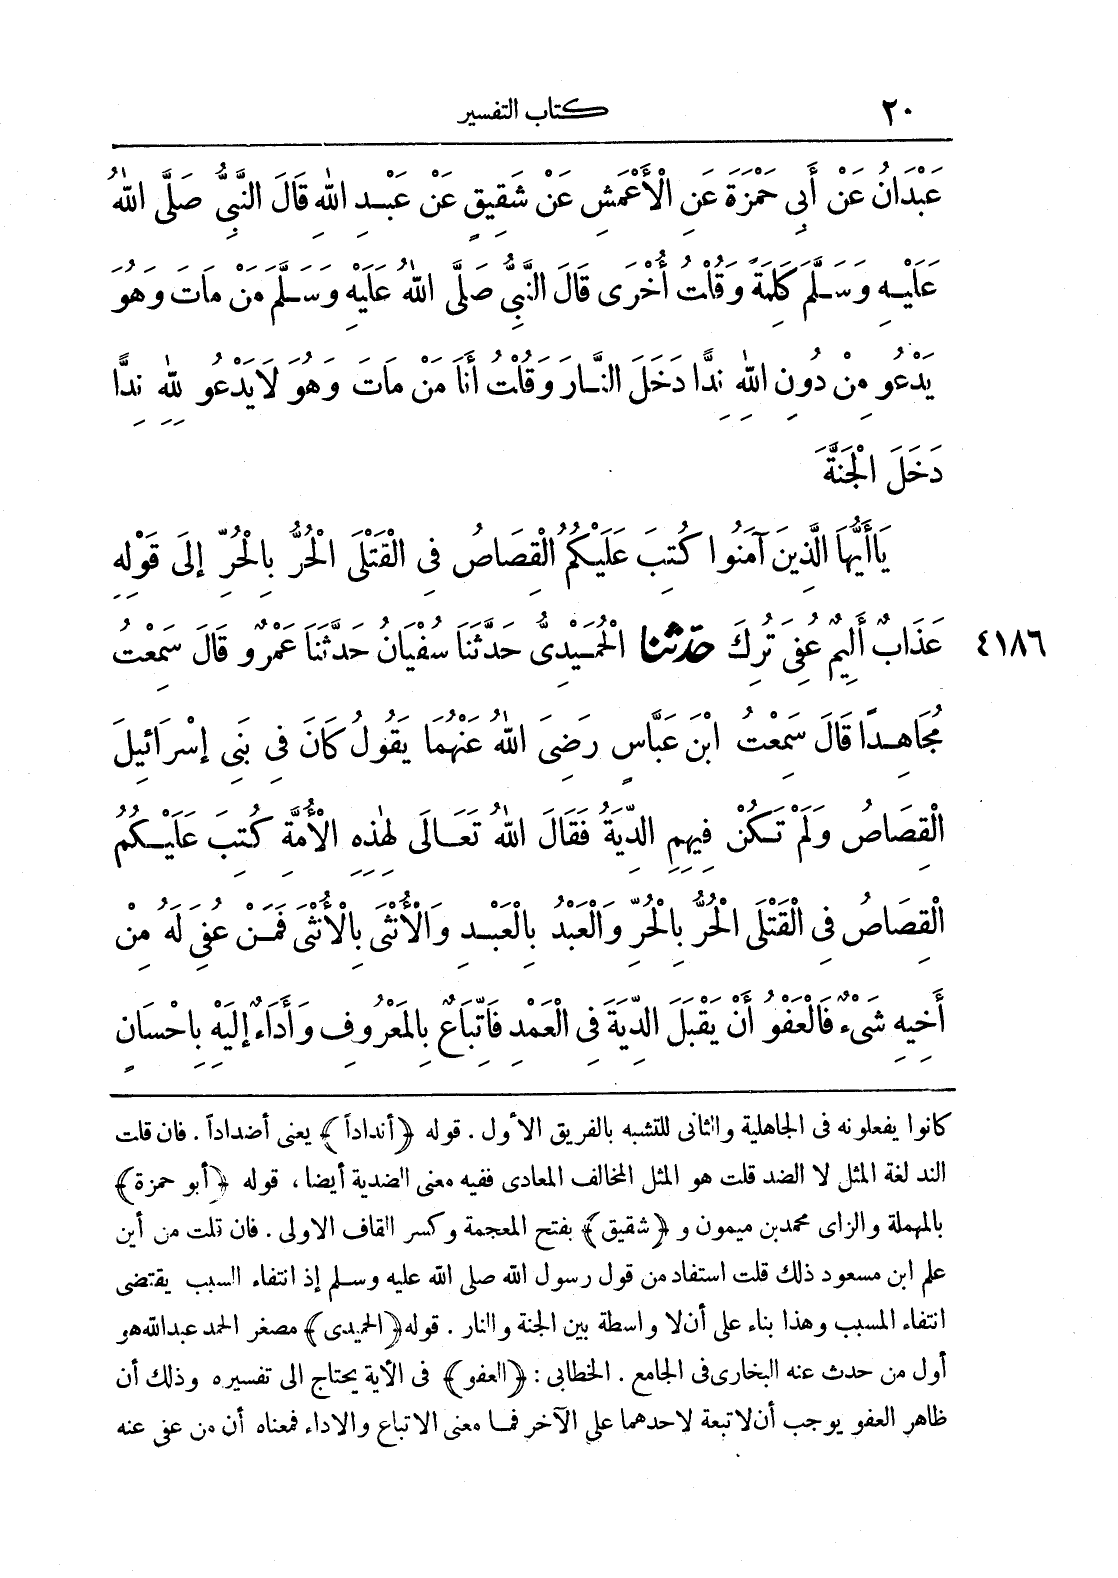 ٢٠ كتاب التفسير
عَبْدَانُ عَنْ أَبِي حَمْزَةَ عَنِ الْأَعْمَشِ عَنْ شَقِيقٍ عَنْ عَبْدِ اللهِ قَالَ النَّبِيُّ صَلَّى اللهُ
عَلَيْهِ وَسَلَّمَ كَلِمَةً وَقُلْتُ أُخْرَى قَالَ النَّبِيُّ صَلَّى اللهُ عَلَيْهِ وَسَلَّمَ مَنْ مَاتَ وَهُوَ
يَدْعُو مِنْ دُونِ اللهِ نِدًّا دَخَلَ النَّارَ وَقُلْتُ أَنَا مَنْ مَاتَ وَهُوَ لَا يَدْعُو لِلهِ نِدًّا
دَخَلَ الْجَنَّةَ
يَا أَيُّهَا الَّذِينَ آمَنُوا كُتِبَ عَلَيْكُمُ الْقِصَاصُ فِى الْقَتْلَى الْحُرُّ بِالْحُرِّ إِلَى قَوْلِهِ
٤١٨٦ عَذَابٌ أَلِيمٌ عُفِىَ تُرِكَ حَدَّثنا الْحُمَيْدِىُّ حَدَّثَنَا سُفْيَانُ حَدَّثَنَا عَمْرٌو قَالَ سَمِعْتُ
مُجَاهِدًا قَالَ سَمِعْتُ ابْنَ عَبَّاسٍ رَضِىَ اللهُ عَنْهُمَا يَقُولُ كَانَ فِى بَنِى إِسْرَائِيلَ
الْقِصَاصُ وَلَمْ تَكُنْ فِيهِمِ الدِّيَةُ فَقَالَ اللهُ تَعَالَى لِهٰذِهِ الْأُمَّةِ كُتِبَ عَلَيْكُمُ
الْقِصَاصُ فِى الْقَتْلَى الْحُرُّ بِالْحُرِّ وَالْعَبْدُ بِالْعَبْدِ وَالْأُنْثَى بِالْأُنْثَى فَمَنْ عُفِىَ لَهُ مِنْ
أَخِيهِ شَىْءٌ فَالْعَفْوُ أَنْ يَقْبَلَ الدِّيَةَ فِى الْعَمْدِ فَاتِّبَاعٌ بِالْمَعْرُوفِ وَأَدَاءٌ إِلَيْهِ بِاحْسَانٍ
كانوا يفعلونه فى الجاهلية والثانى للتشبه بالفريق الأول . قوله ﴿أنداداً﴾ يعنى أضداداً . فان قلت
الند لغة المثل لا الضد قلت هو المثل المخالف المعادى ففيه معنى الضدية أيضا ، قوله ﴿أبو حمزة﴾
بالمهملة والزاى محمد بن ميمون و ﴿شقيق﴾ بفتح المعجمة وكسر القاف الاولى . فان قلت من أين
علم ابن مسعود ذلك قلت استفاد من قول رسول الله صلى الله عليه وسلم إذ انتفاء السبب يقتضى
انتفاء المسبب وهذا بناء على أن لا واسطة بين الجنة والنار . قوله ﴿الحميدى﴾ مصغر الحمد عبدالله هو
أول من حدث عنه البخارى فى الجامع . الخطابى : ﴿العفو﴾ فى الأية يحتاج الى تفسيره وذلك أن
ظاهر العفو يوجب أن لا تبعة لاحدهما على الآخر فما معنى الاتباع والاداء فمعناه أن من عفى عنه